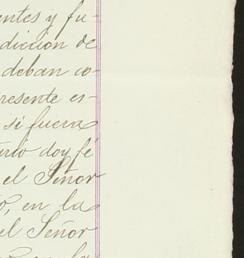 entes y fu-
diccion de
deban co-
resente es-
si fuera
doy fé
el Señor
o, en la
el Señor